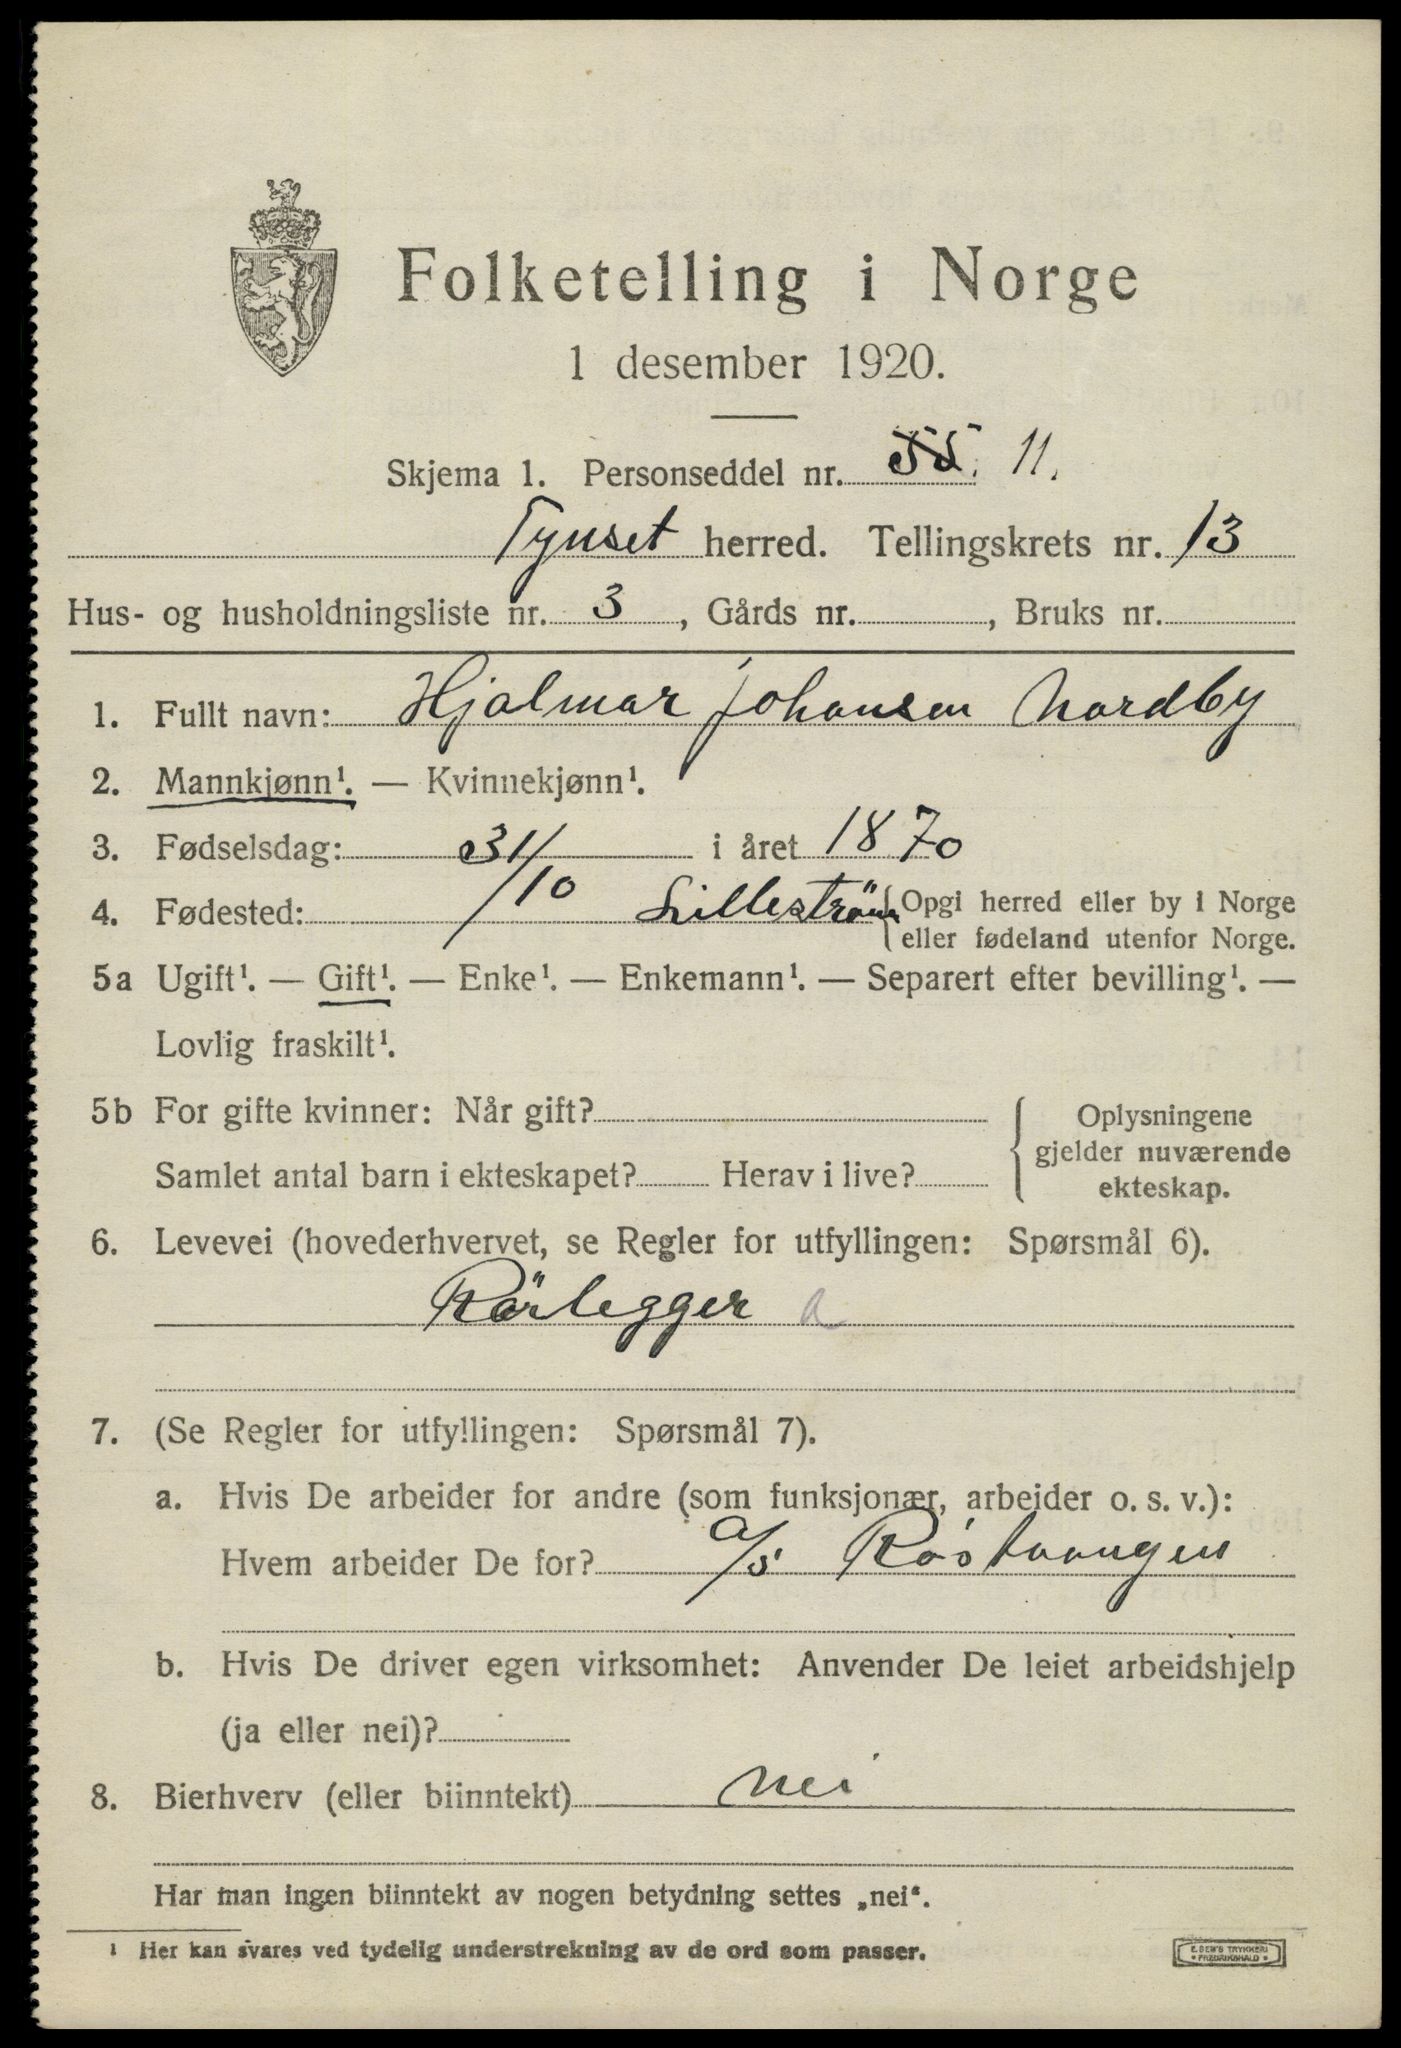 Folketelling i Norge
1 desember 1920.
Skjema 1. Personseddel nr. 55. 11.
Tynset herred. Tellingskrets nr. 13
Hus- og husholdningsliste nr. 3, Gårds nr. , Bruks nr.
1. Fullt navn: Hjalmar Johansen Nordby
2. Mannkjønn¹. — Kvinnekjønn¹.
3. Fødselsdag: 31/10 i året 1870
4. Fødested: Lilleström {Opgi herred eller by i Norge
eller fødeland utenfor Norge.
5a Ugift¹. — Gift¹. — Enke¹. — Enkemann¹. — Separert efter bevilling¹. —
Lovlig fraskilt¹.
5b For gifte kvinner: Når gift?
Samlet antal barn i ekteskapet? Herav i live?
Oplysningene
gjelder nuværende
ekteskap.
6. Levevei (hovederhvervet, se Regler for utfyllingen: Spørsmål 6).
Rörlegger a
7. (Se Regler for utfyllingen: Spørsmål 7).
a. Hvis De arbeider for andre (som funksjonær, arbeider o. s. v.):
Hvem arbeider De for? a/s Røstvangen
b. Hvis De driver egen virksomhet: Anvender De leiet arbeidshjelp
(ja eller nei)?
8. Bierhverv (eller biinntekt) Nei
Har man ingen biinntekt av nogen betydning settes „nei“.
¹ Her kan svares ved tydelig understrekning av de ord som passer.
E. SEM'S TRYKKERI
• FREDRIKSHALD •